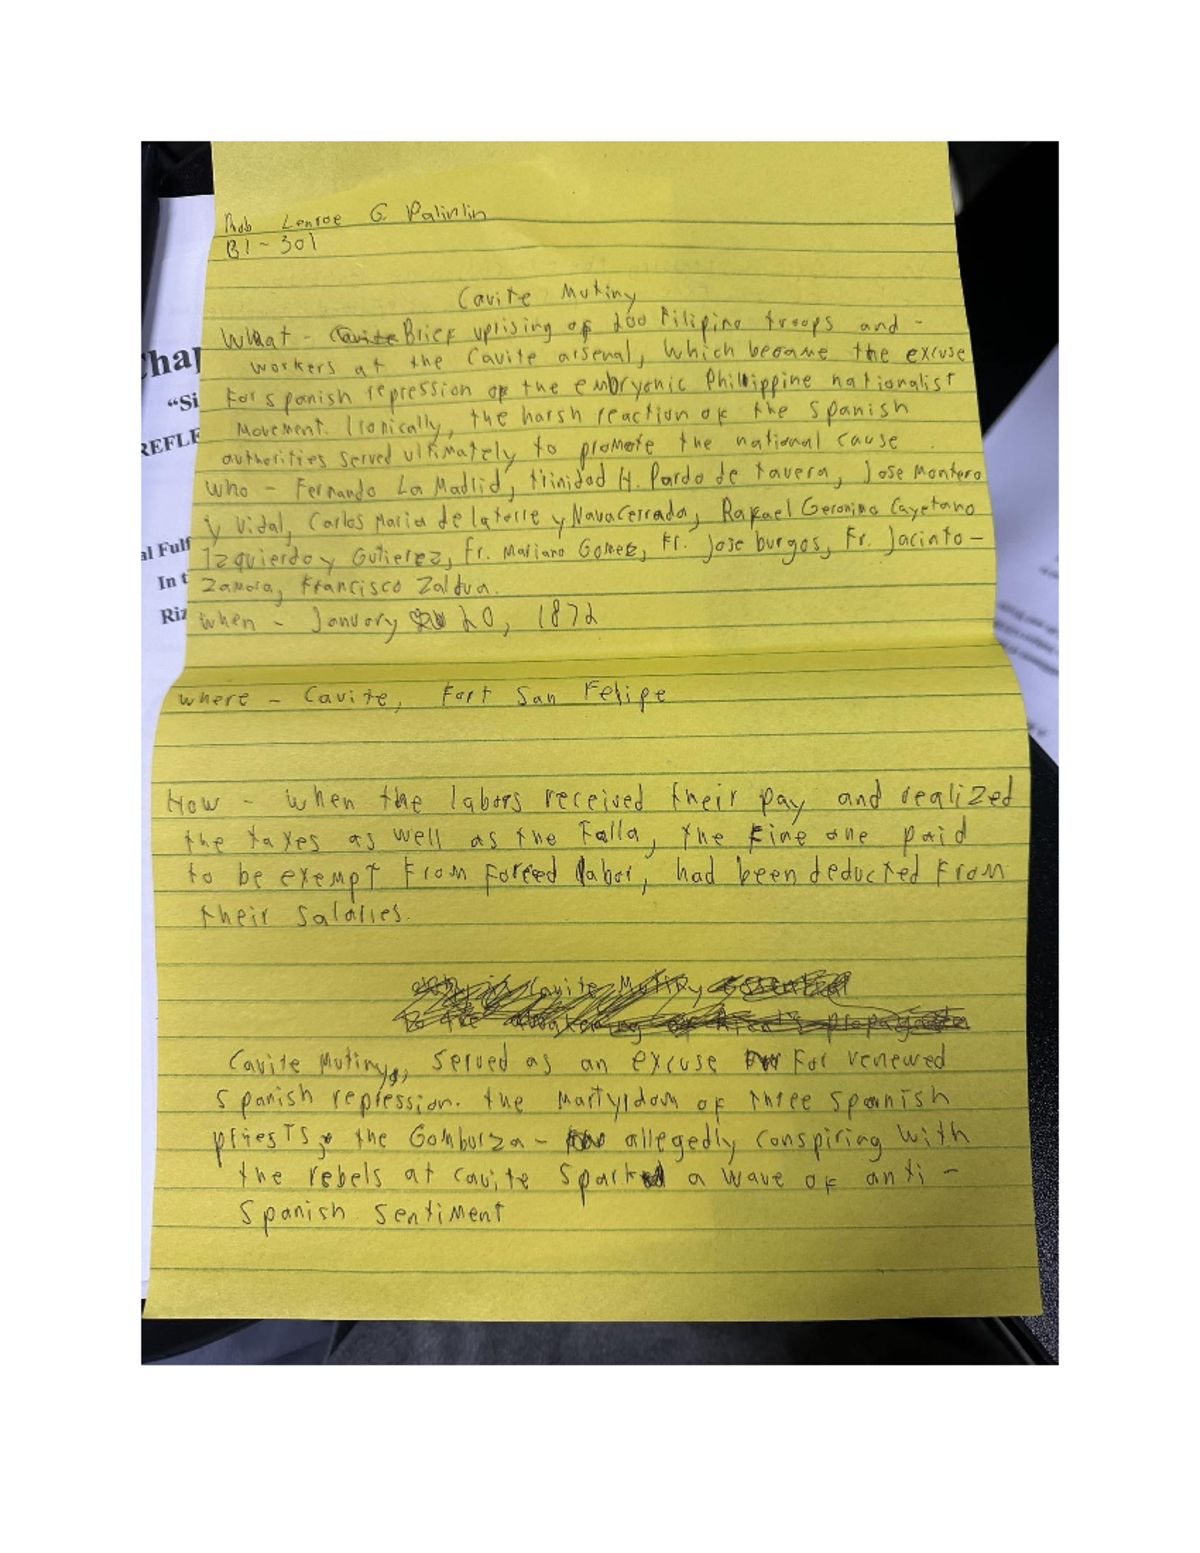 Lenroe G. Palinlin
B1 - 301
Cavite Mutiny
What - Cavite Brief uprising of 200 Filipino troops and -
workers at the Cavite arsenal, which became the excuse
For spanish repression of the embryonic Philippine nationalist
movement. Ironically, the harsh reaction of the spanish
authorities served ultimately to promote the national cause.
who - Fernando La Madrid, trinidad H. Pardo de tavera, Jose montero
y Vidal, Carlos Maria de latorre y NavaCerrada, Rafael Geronimo Cayetano
Izquierdo y Gutierez, Fr. Mariano Gomez, Fr. Jose burgos, Fr. Jacinto -
Zamora, Francisco Zaldua.
when - January 20, 1872
where - Cavite, Fort San Felipe
How - when the labors received their pay and realized
the taxes as well as the Falla, the Fine one paid
to be exempt From Forced labor, had been deducted From
their salaries.
Cavite Mutiny
Cavite Mutiny, served as an excuse For renewed
Spanish repression. the martyrdom of three spanish
priests, the Gomburza - allegedly conspiring with
the rebels at cavite spark a wave of anti -
Spanish sentiment
Chap
“Si
REFLE
al Fulf
In t
Riz